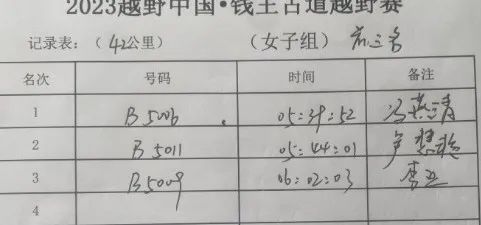 2023越野中国·钱王古道越野赛
记录表：（ 42公里） （女子组） 前三名
名次 号码 时间 备注
1 B5006 05:39:52 冯燕清
2 B5011 05:44:01
3 B5009 06:02:03 李亚
4